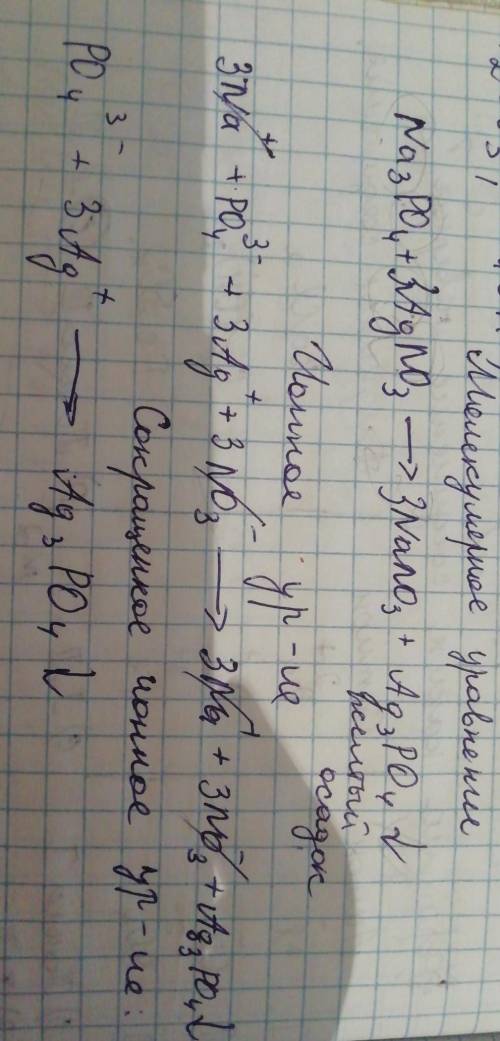 Молекулярное уравнение
Na₃PO₄ + 3AgNO₃ → 3NaNO₃ + Ag₃PO₄↓
желтый
осадок
Ионное ур-ие
3Na⁺ + PO₄³⁻ + 3Ag⁺ + 3NO₃⁻ → 3Na⁺ + 3NO₃⁻ + Ag₃PO₄↓
Сокращенное ионное ур-ие:
PO₄³⁻ + 3Ag⁺ → Ag₃PO₄↓